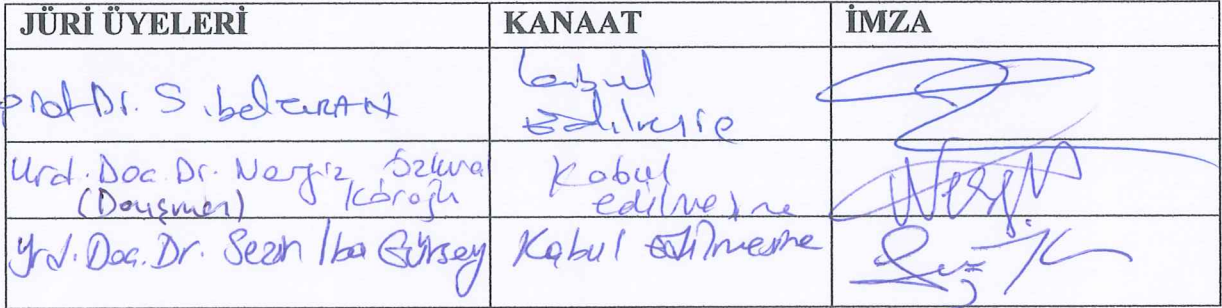 JÜRİ ÜYELERİ KANAAT İMZA
Prof. Dr. Sibel Kabul
Edilmesine
Yrd. Doc. Dr. Nergiz Kabul
(Danışman) Köroğlu edilmesine
Yrd. Doc. Dr. Sezin İba Gürsoy Kabul Edilmesine